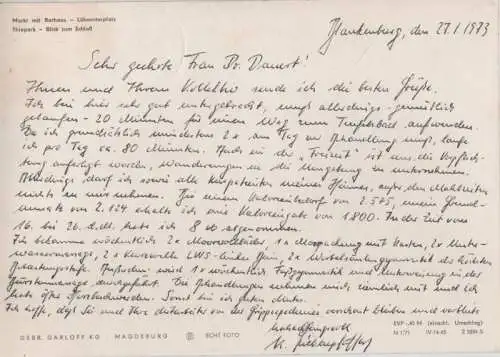 Markt mit Rathaus – Lühnertorplatz
Thiepark – Blick zum Schloß
Blankenburg, den 27.1.1983
Sehr geehrte Frau Dr. Danert!
Ihnen und Ihrem Kollektiv sende ich die besten Grüße.
Ich bin hier sehr gut untergebracht, muß allerdings - gemütlich
gelaufen - 20 Minuten für einen Weg zum Teufelsbad aufwenden.
Da ich grundsätzlich mindestens 2 x am Tag zu Behandlung muß, laufe
ich pro Tag ca. 80 Minuten. Auch in der "Freizeit" ist uns die Verpflich-
tung auferlegt worden, Wanderungen in die Umgebung zu unternehmen.
Allerdings darf ich sowie alle Kurpatienten meines Heimes, außer den Mahlzeiten
nichts zu uns nehmen. Für einen Kalorienbedarf von 2.505, meinem Grund-
umsatz von 2.124 erhalte ich eine Kalorienzufuhr von 1.800. In der Zeit vom
16. bis 26. d.M. habe ich 8 abgenommen.
Ich bekomme wöchentlich 2 x Moorvollbäder, 1 x Moorpackung mit Kasten, 2 x Unter-
wassermassage, 2 x LWS- 2 x Wirbelsäulengymnastik als höchsten
Packungsstufe. Außerdem wird 1 x wöchentlich Fußgymnastik und Unterweisung in der
durchgeführt. Die Behandlungen nehmen mich ziemlich mit und ich
habe öfter Kreuzbeschwerden. Sonst bin ich guten Mutes.
Ich hoffe, daß Sie und Ihre Mitarbeiter von der Grippeperiode verschont bleiben und verbleibe
hochachtungsvoll
K.
GEBR. GARLOFF KG MAGDEBURG ECHT FOTO
EVP -,40 M (einschl. Umschlag)
N 1/71 IV-14-45 Z 5891 G